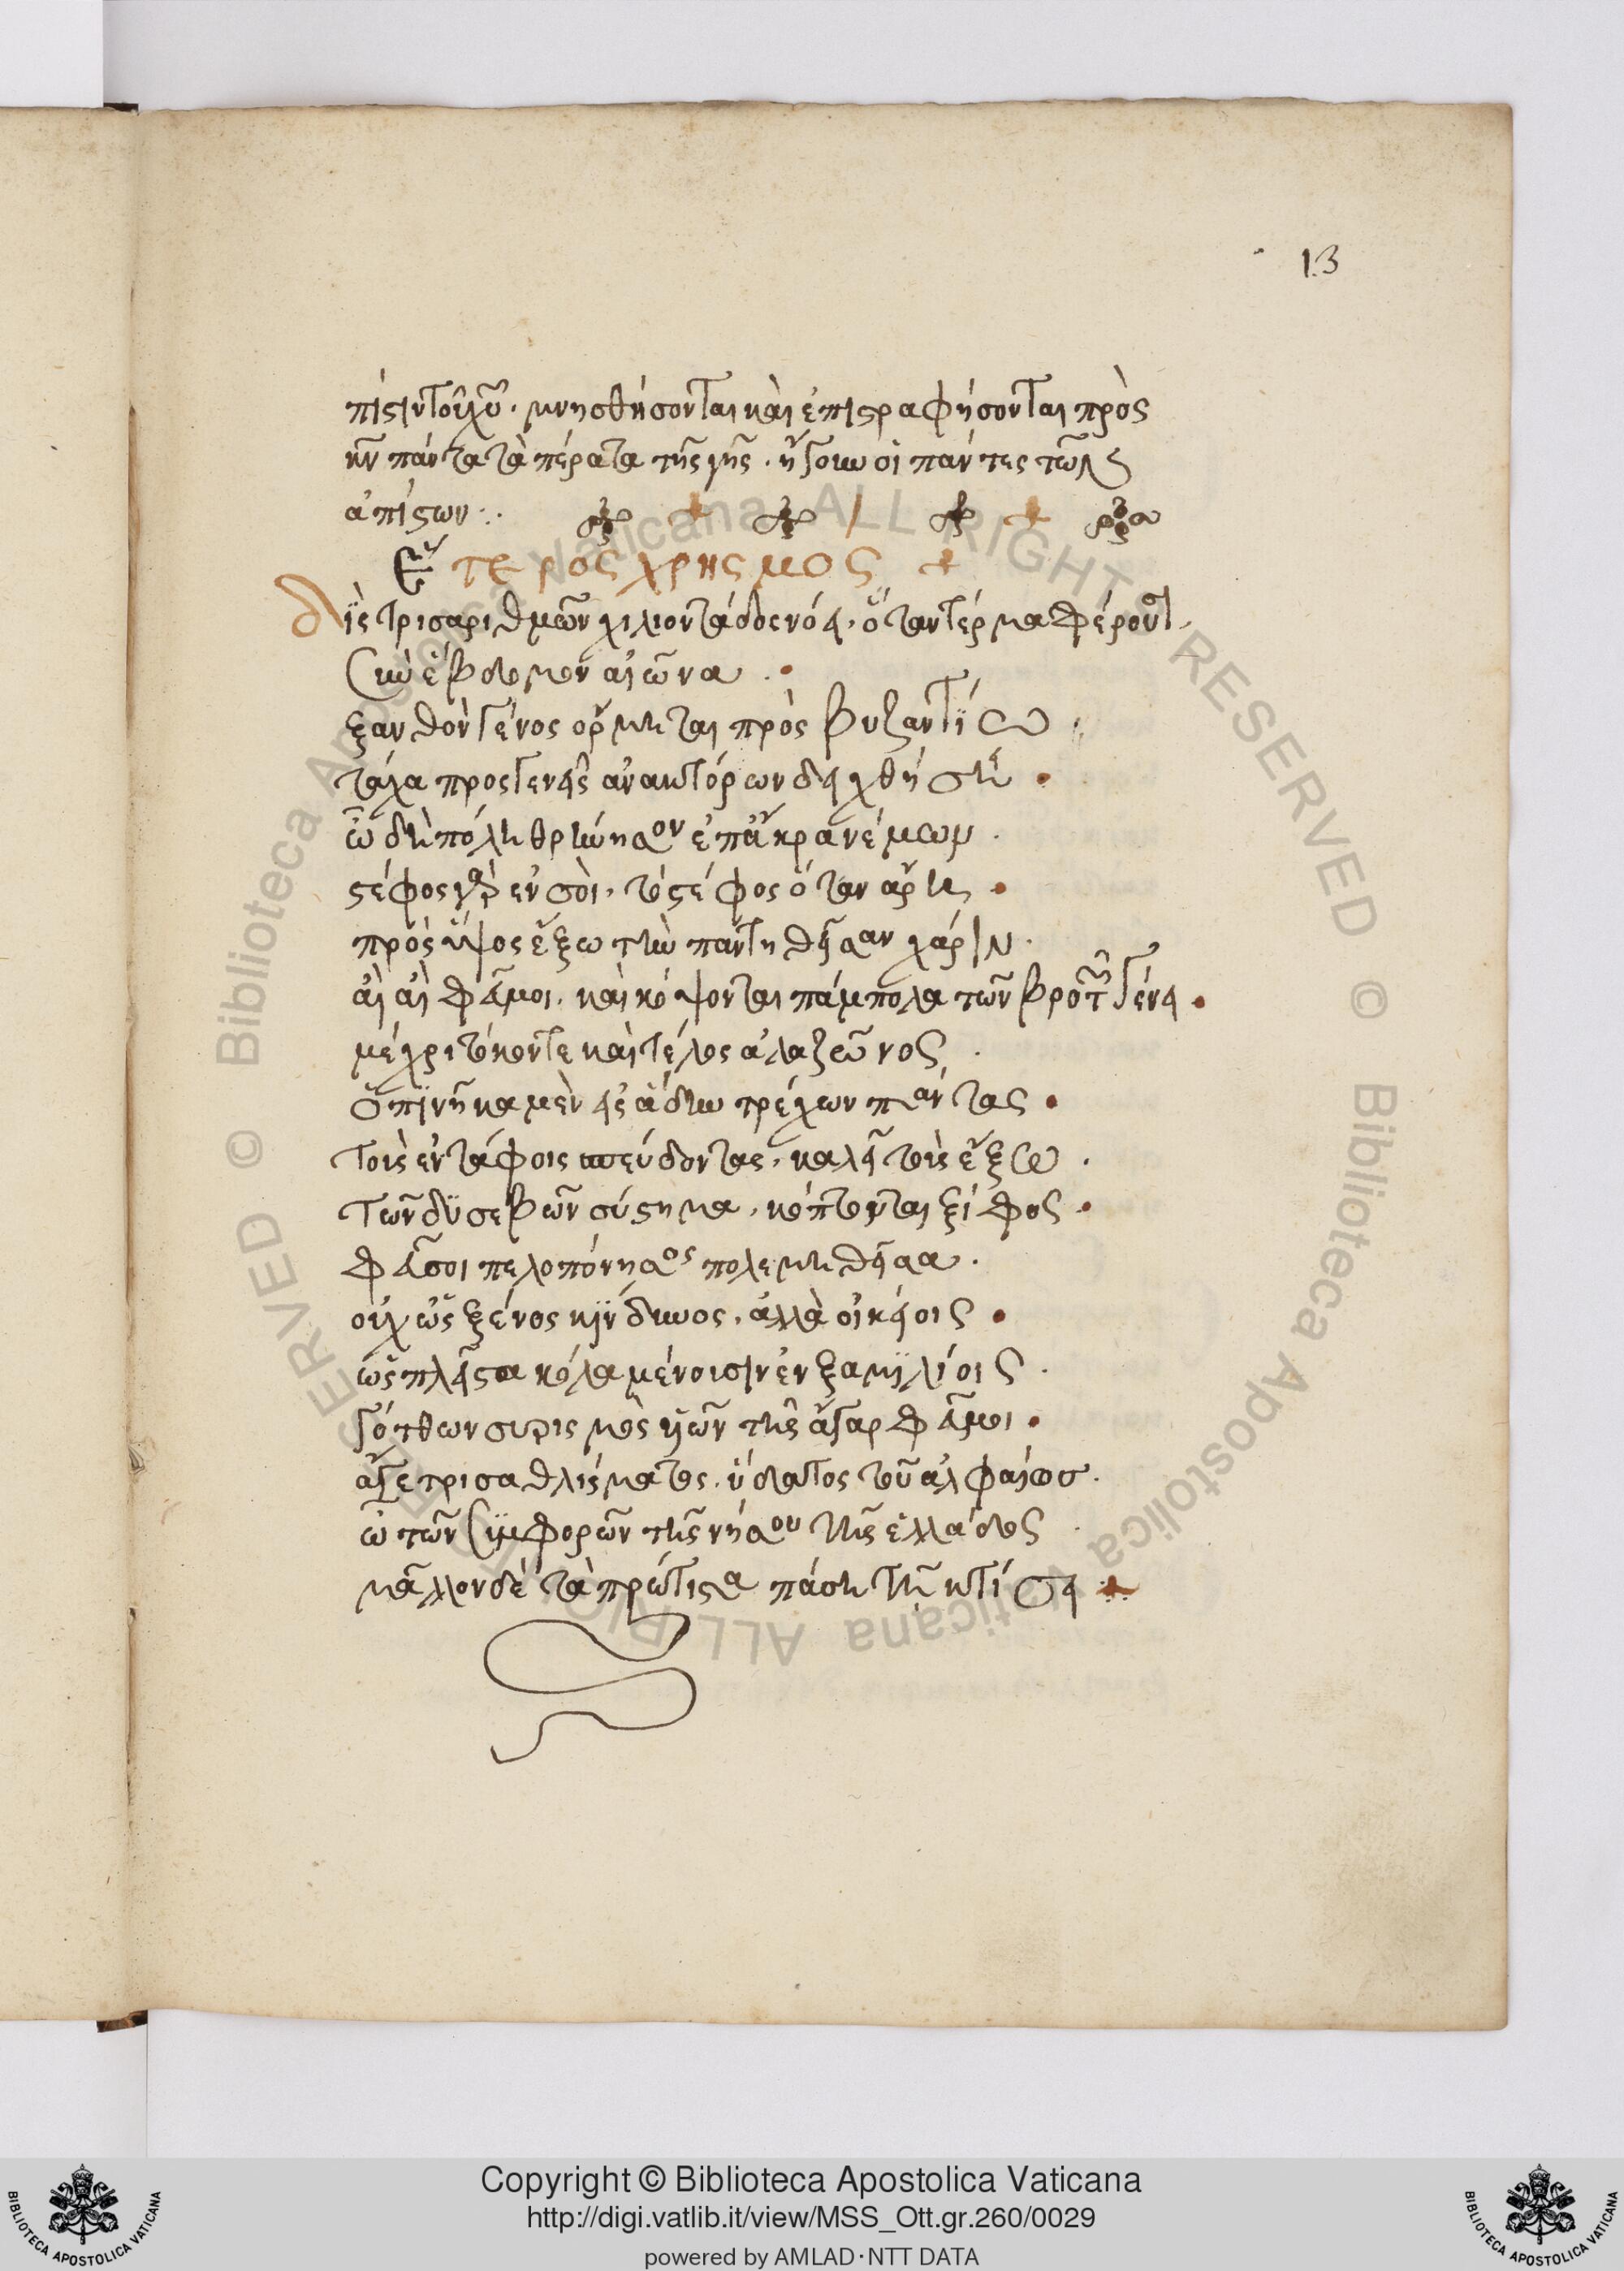 13
πίστιν τοῦ χυ. μνησθήσονται καὶ ἐπιστραφήσονται πρὸς
κν πάντα τὰ πέρατα τῆς γῆς. ἤγουν οἱ πάντες τῶν
ἀπίστων:.
Ἕτερος χρησμος
Δὶς τρισαριθμῶν χιλιοντάδδεν ὅταν τέρμα φέρουσι
σὺν ἑβδομον αἰῶνα.
ξανθὸν γένος ὁρμῆται πρὸς βυζαντίω.
τάχα προσγενεῖς ἀνακτόρων δειχθήση.
ὦ δὴ πόλη θρήνησον ἐπἄκρ ἀνέμων.
στέφος γὰρ ἐν σοὶ. τὸ στέφος ὅταν ἄρη.
πρὸς ὕψος ἔξω τὴν παντη θεῖσαν χάριν.
αἲ αἲ φεῦ μοι. καὶ κόψονται πάμπολα τῶν βροτῶν γένει.
μέχρι τόκοντε καὶ τέλος ἀλαζῶνος.
ὁπινῆκα μὲν εἰς ἅδην τρέχων πάντας.
τοὺς ἐν τάφοις σπεύδοντας. καλεῖ τοὺς ἔξω.
τῶν δυσεβῶν σύστημα. κόπτονται ξίφος.
φεῦ σοι πελοπόνησος πολεμηθεῖσα.
οὐχ ὡς ξένος κίνδυνος. ἀλλὰ οἰκείοις.
ὡς πλεῖστα κόλαμένοισιν ἐν ξαμιλίοις.
γότθων συρισμὸς ἡῶν τῆς ἄγαρ φεῦ μοι.
ἄγε τρισαθλίσματος. ὕδατος τοῦ ἀλφαίοσ.
ὢ τῶν συμφορῶν τῆς νήσου τῆς ἑλλάδος
μᾶλλον δὲ τὰ πρώτιστα πάση τῆ κτίσει
Copyright © Biblioteca Apostolica Vaticana
http://digi.vatlib.it/view/MSS_Ott.gr.260/0029
powered by AMLAD·NTT DATA
BIBLIOTECA APOSTOLICA VATICANA
BIBLIOTECA APOSTOLICA VATICANA
© Biblioteca Apostolica Vaticana ALL RIGHTS RESERVED
© Biblioteca Apostolica Vaticana ALL RIGHTS RESERVED